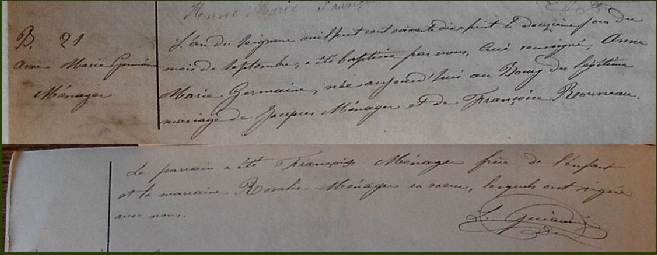 B. 21
Anne Marie Germaine
Ménager
L'an du Seigneur mil huit cent soixante dix sept le douzième jour du
mois de Septembre, a été baptisée par nous, Curé soussigné, Anne
Marie Germaine, née aujourd'hui au Bourg du légitime
mariage de Jacques Ménager et de Françoise
Le parrain a été François Ménager frère de l'enfant
et la marraine Rosalie Ménager sa sœur, lesquels ont signé
avec nous.